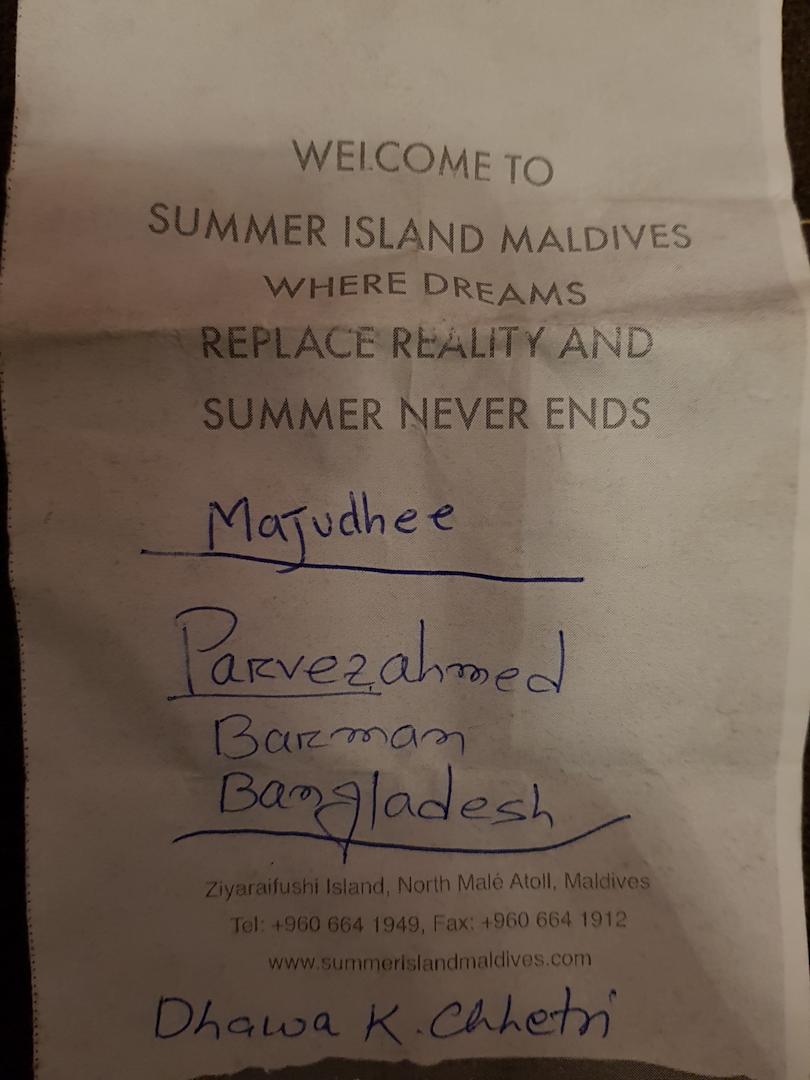 WELCOME TO
SUMMER ISLAND MALDIVES
WHERE DREAMS
REPLACE REALITY AND
SUMMER NEVER ENDS
Majudhee
Parvez ahmed
Barman
Bangladesh
Ziyaraifushi Island, North Malé Atoll, Maldives
Tel: +960 664 1949, Fax: +960 664 1912
www.summerislandmaldives.com
Dhawa K. Chhetri